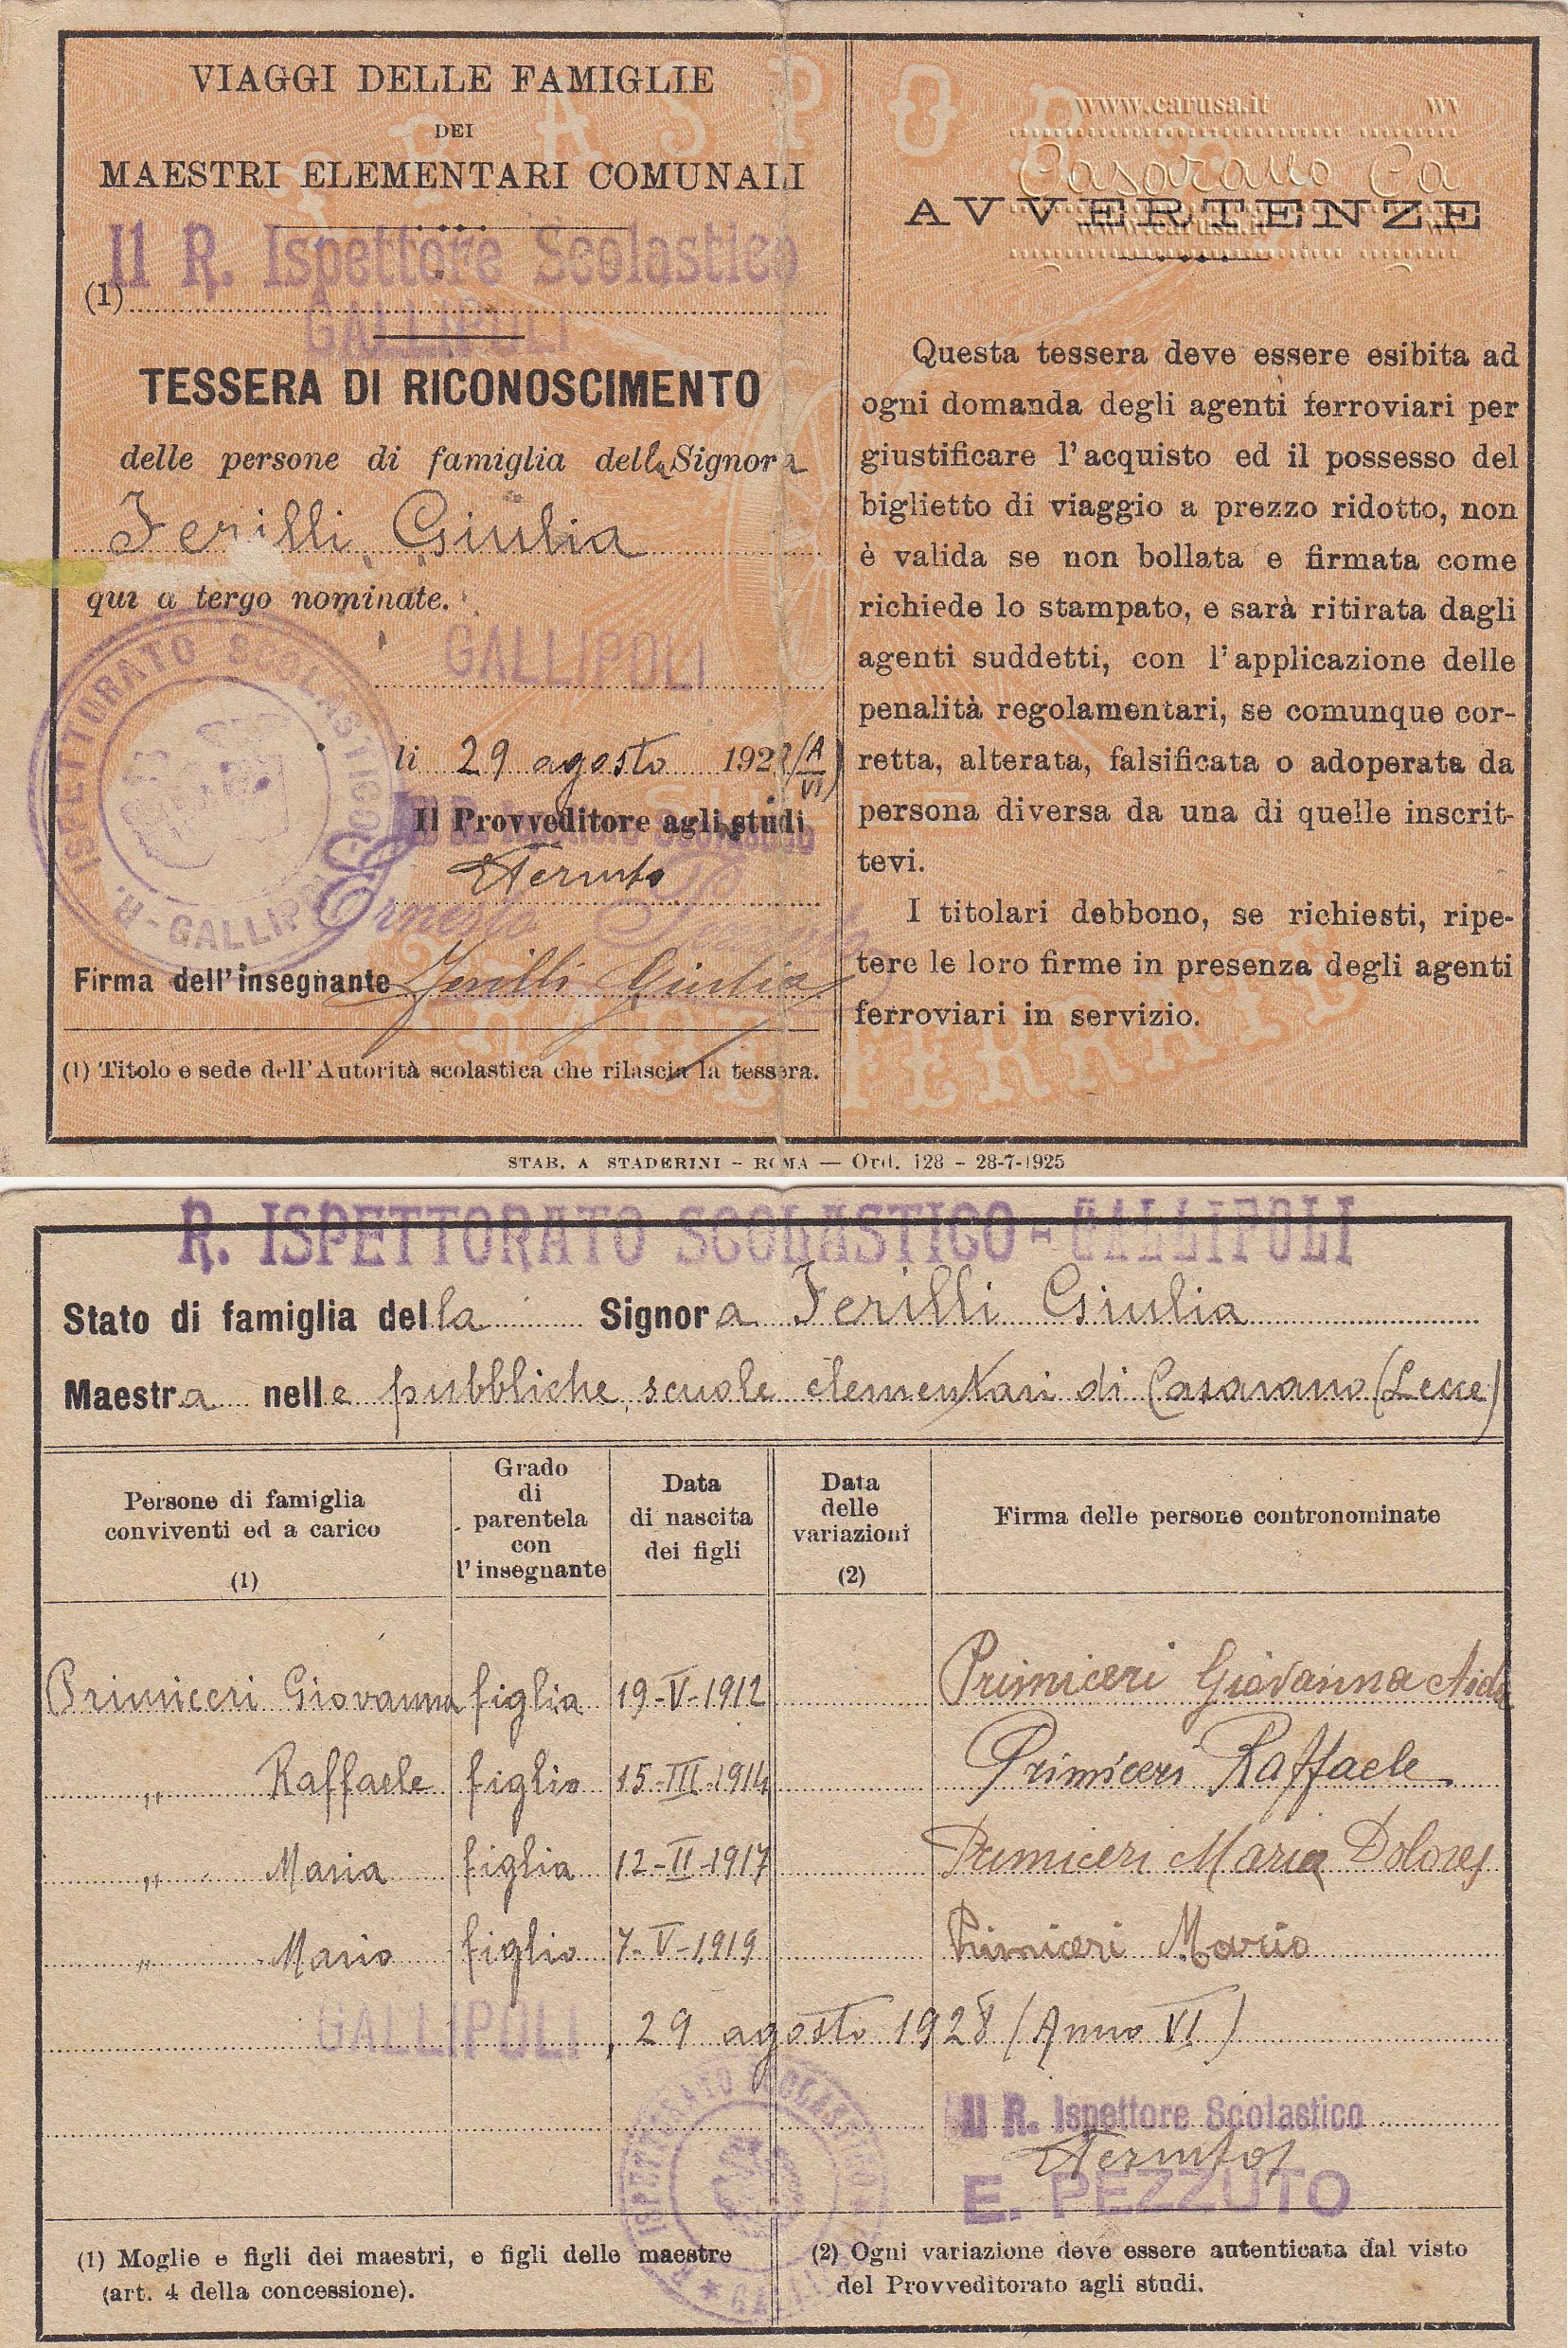 VIAGGI DELLE FAMIGLIE
DEI
MAESTRI ELEMENTARI COMUNALI
Il R. Ispettore Scolastico
(1)
GALLIPOLI
TESSERA DI RICONOSCIMENTO
delle persone di famiglia della Signora
Ferilli Giulia
qui a tergo nominate.
GALLIPOLI
ISPETTORATO SCOLASTICO
R. - GALLIPOLI
li 29 agosto 192 (A VI)
Il Provveditore agli studi
Ernesto
Firma dell'insegnante Ferilli Giulia
(1) Titolo e sede dell'Autorità scolastica che rilascia la tessera.
www.carusa.it
Casarano Ca
AVVERTENZE
www.carusa.it
Questa tessera deve essere esibita ad
ogni domanda degli agenti ferroviari per
giustificare l'acquisto ed il possesso del
biglietto di viaggio a prezzo ridotto, non
è valida se non bollata e firmata come
richiede lo stampato, e sarà ritirata dagli
agenti suddetti, con l'applicazione delle
penalità regolamentari, se comunque cor-
retta, alterata, falsificata o adoperata da
persona diversa da una di quelle inscrit-
tevi.
I titolari debbono, se richiesti, ripe-
tere le loro firme in presenza degli agenti
ferroviari in servizio.
STAB. A STADERINI - ROMA — Ord. 128 - 28-7-1925
R. ISPETTORATO SCOLASTICO - GALLIPOLI
Stato di famiglia della Signora Ferilli Giulia
Maestra nelle pubbliche scuole elementari di Casarano (Lecce)
Persone di famiglia
conviventi ed a carico
(1)
Grado
di
parentela
con
l'insegnante
Data
di nascita
dei figli
Data
delle
variazioni
(2)
Firma delle persone contronominate
Primiceri Giovanna figlia 19-V-1912 Primiceri Giovanna Aida
„ Raffaele figlio 15-III-1914 Primiceri Raffaele
„ Maria figlia 12-II-1917 Primiceri Maria Dolores
„ Mario figlio 7-V-1919 Primiceri Mario
GALLIPOLI, 29 agosto 1928 (Anno VI)
Il R. Ispettore Scolastico
E. PEZZUTO
ISPETTORATO SCOLASTICO
(1) Moglie e figli dei maestri, e figli delle maestre
(art. 4 della concessione).
(2) Ogni variazione deve essere autenticata dal visto
del Provveditorato agli studi.